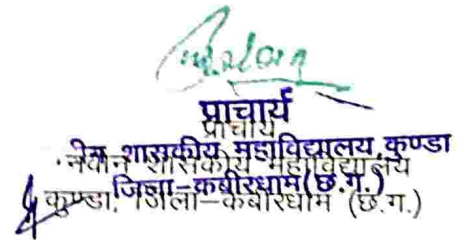 प्राचार्य
प्राचार्य
शासकीय महाविद्यालय, कुण्डा
नवीन शासकीय महाविद्यालय
जिला-कबीरधाम (छ.ग.)
कुण्डा, जिला-कबीरधाम (छ.ग.)